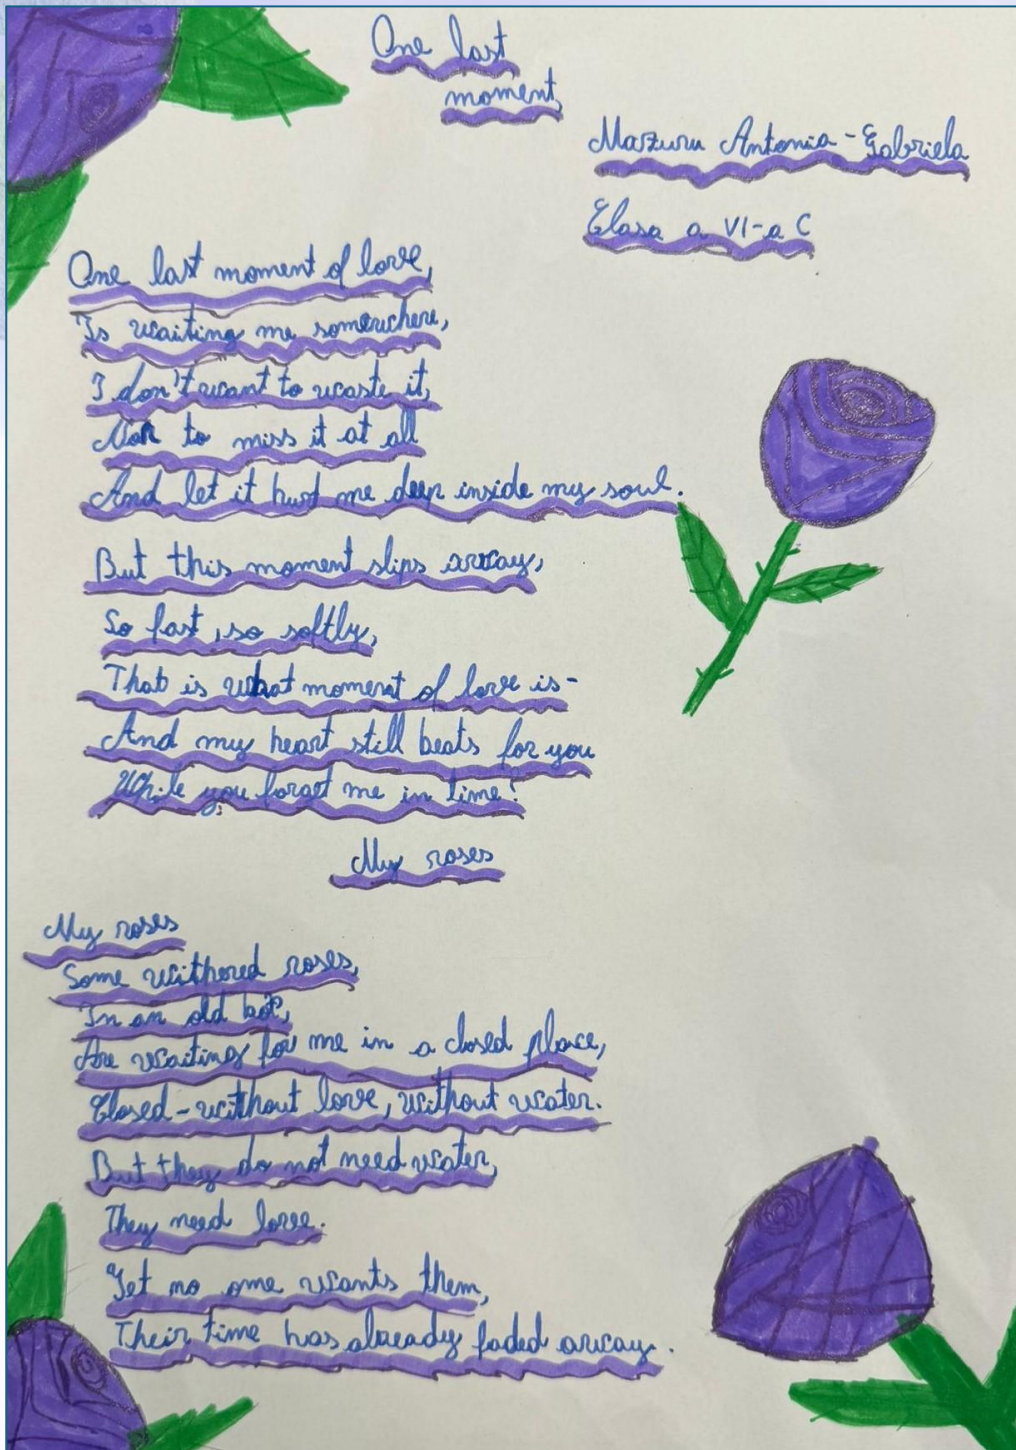 One last
moment,
Mazuru Antonia-Gabriela
Clasa a VI-a C
One last moment of love,
Is waiting me somewhere,
I don't want to waste it,
Nor to miss it at all
And let it hurt me deep inside my soul.
But this moment slips away,
So fast, so softly,
That is what moment of love is-
And my heart still beats for you
While you forget me in time!
My roses
My roses
Some withered roses,
In an old box,
Are waiting for me in a closed place,
Closed-without love, without water.
But they do not need water,
They need love.
Yet no one wants them,
Their time has already faded away.